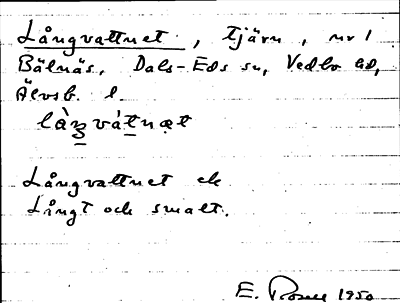 Långvattnet, tjärn, nr 1
Bälnäs, Dals-Eds sn, Vedbo hd,
Älvsb. l.
làŋ̠ vát̠næt
Långvattnet ek
Långt och smalt.
E. 1950